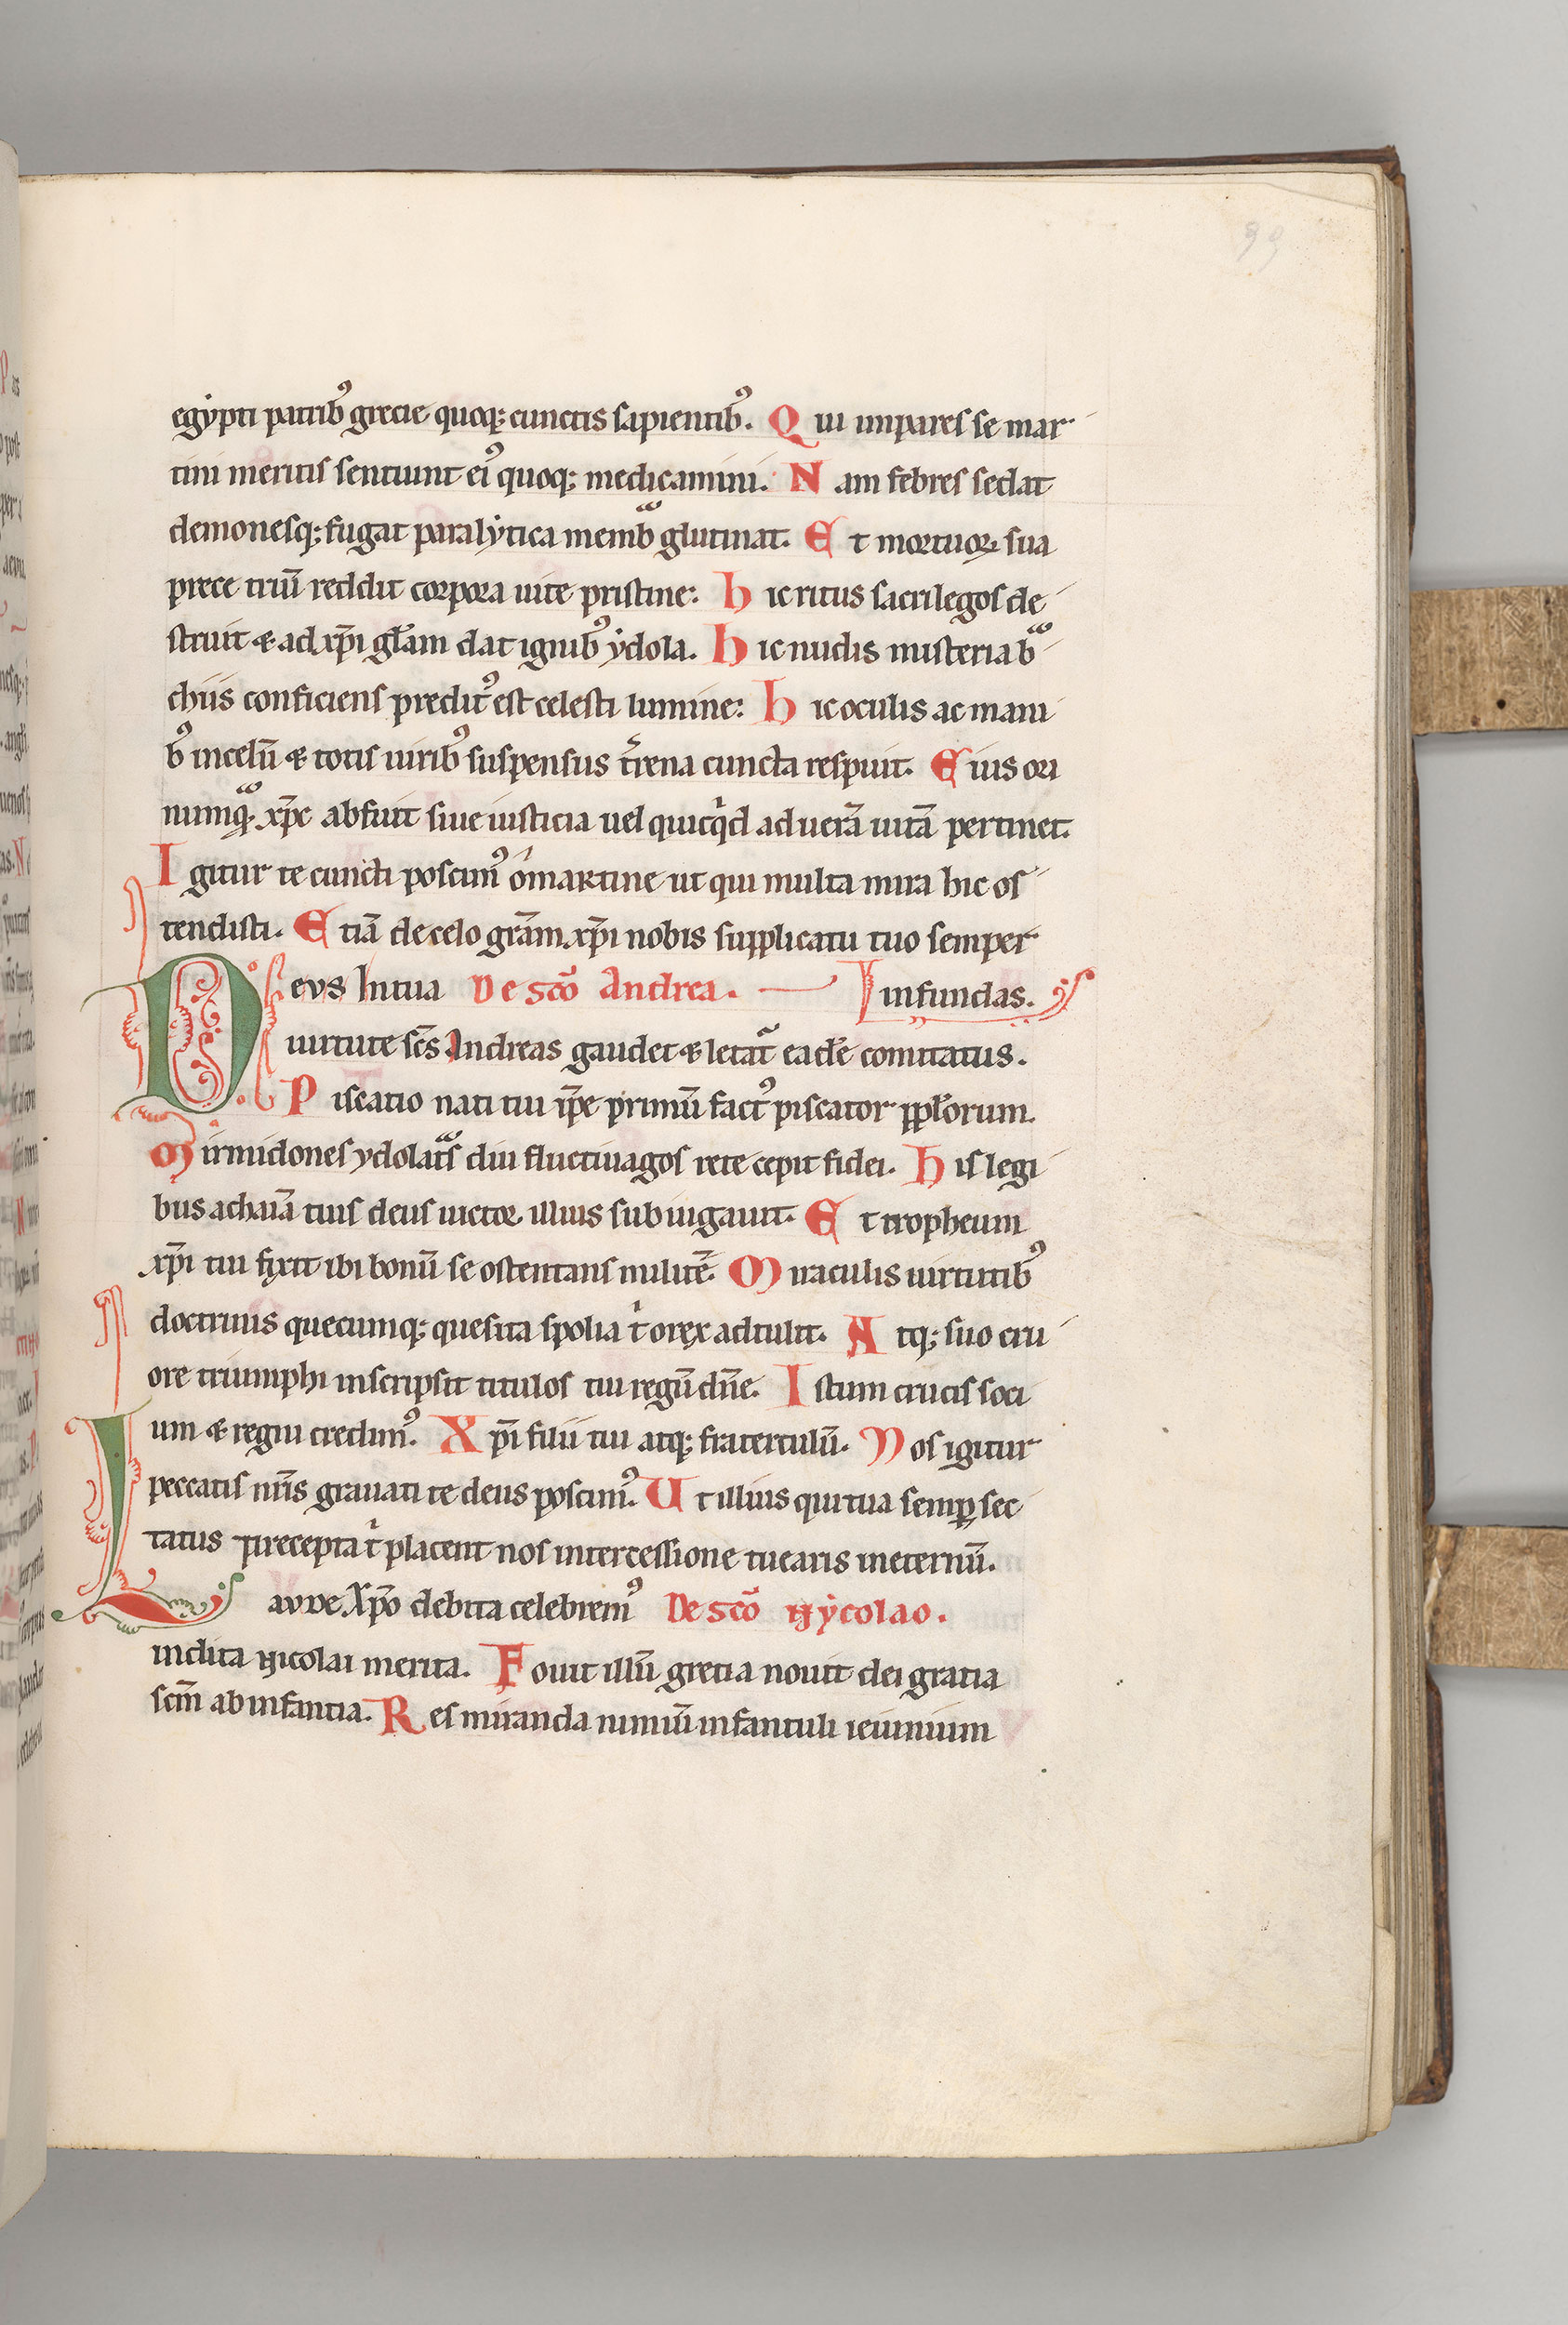 99
egẏpti patrib᷒ grecie quoq; cunctis sapientib᷒. Qui impares se mar
tini meritis sentiunt ei᷒ quoq; medicamini. Nam febres sedat
demonesq; fugat paralẏtica memb glutinat. Et mortuoꝝ sua
prece triū reddit corpora uite pristine: Hic ritus sacrilegos de
struit & ad xp̄i gl̄am dat ignib᷒ ẏdola. Hic nudis misteria b
chiis conficiens predit᷒ est celesti lumine: Hic oculis ac mani
b᷒ in celū & totis uirib᷒ suspensus t̄rena cuncta respuit. Eius ori
numq̄ xp̄c abfuit siue iusticia uel quicq̇d ad uerā uitā pertinet.
Igitur te cuncti poscim᷒ o martine ut qui multa mira hic os
tendisti. Etiā de celo gr̄am xp̄i nobis supplicatu tuo semper
infundas.
Deus In tua De sc̄o Andrea.
uirtute sc̄s Andreas gaudet & letat᷑ eadē comitatus.
Piscatio nati tui ip̄e primū fact᷒ piscator pp̄lorum.
Mirmidones ydolat̄s diu fluctiuagos rete cepit fidei. His legi
bus achaiā tuis deus uictor illius subiugauit. Et tropheum
xp̄i tui fixit ibi bonū se ostentans militē. Miraculis uirtutib᷒
doctrinis quecumq; quesita spolia t̍ o rex adtulit. Atq; suo cru
ore triumphi inscripsit titulos tui regū dn̄e. Istum crucis soci
um & regni credim᷒. Xp̄i filii tui atq; fraterculū. Nos igitur
peccatis nr̄is grauati te deus poscim᷒. Ut illius qui tua semꝑ sec
tatus precepta t̍ placent nos intercessione tuearis in eternū.
Laude Xp̄o debita celebrem᷒ De sc̄o Nẏcolao.
inclita Nicolai merita. Fouit illū grecia nouit dei gratia
scm̄ ab infantia. Res miranda nimiū infantuli ieiunium